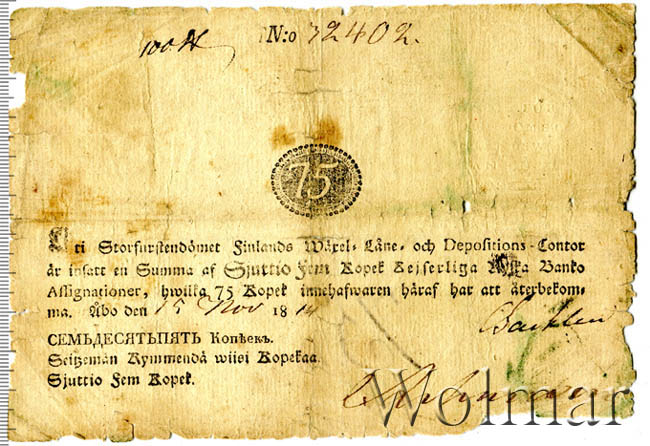 100.
N:o 72402.
75
Uti Storfurstendömet Finlands Wäxel-, Låne- och Depositions-Contor
är insatt en Summa af Sjuttio Fem Kopek Kejserliga Ryska Banko
Assignationer, hwilka 75 Kopek innehafwaren häraf har att återbekom-
ma. Åbo den 15 Nov 18
СЕМЬДЕСЯТЬПЯТЬ Копѣекъ.
Seitzemän Kymmendä wiisi Kopekaa
Sjuttio Fem Kopek.
Wolmar